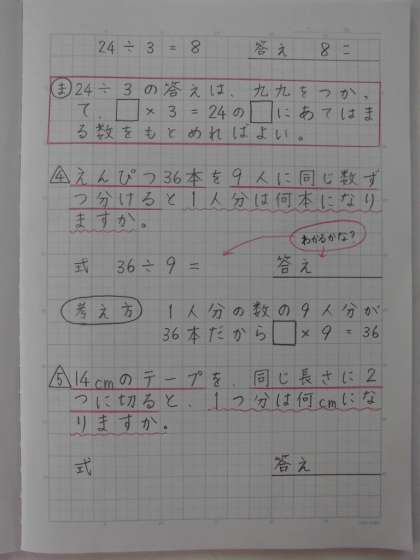 24÷3=8 答え 8こ
ま 24÷3の答えは、九九をつかっ
て、□×3=24の□にあてはま
る数をもとめればよい。
4 えんぴつ36本を9人に同じ数ず
つ分けると1人分は何本になり
ますか。
わかるかな?
式 36÷9= 答え
考え方 1人分の数の9人分が
36本だから□×9=36
5 14cmのテープを、同じ長さに2
つに切ると、1つ分は何cmにな
りますか。
式 答え